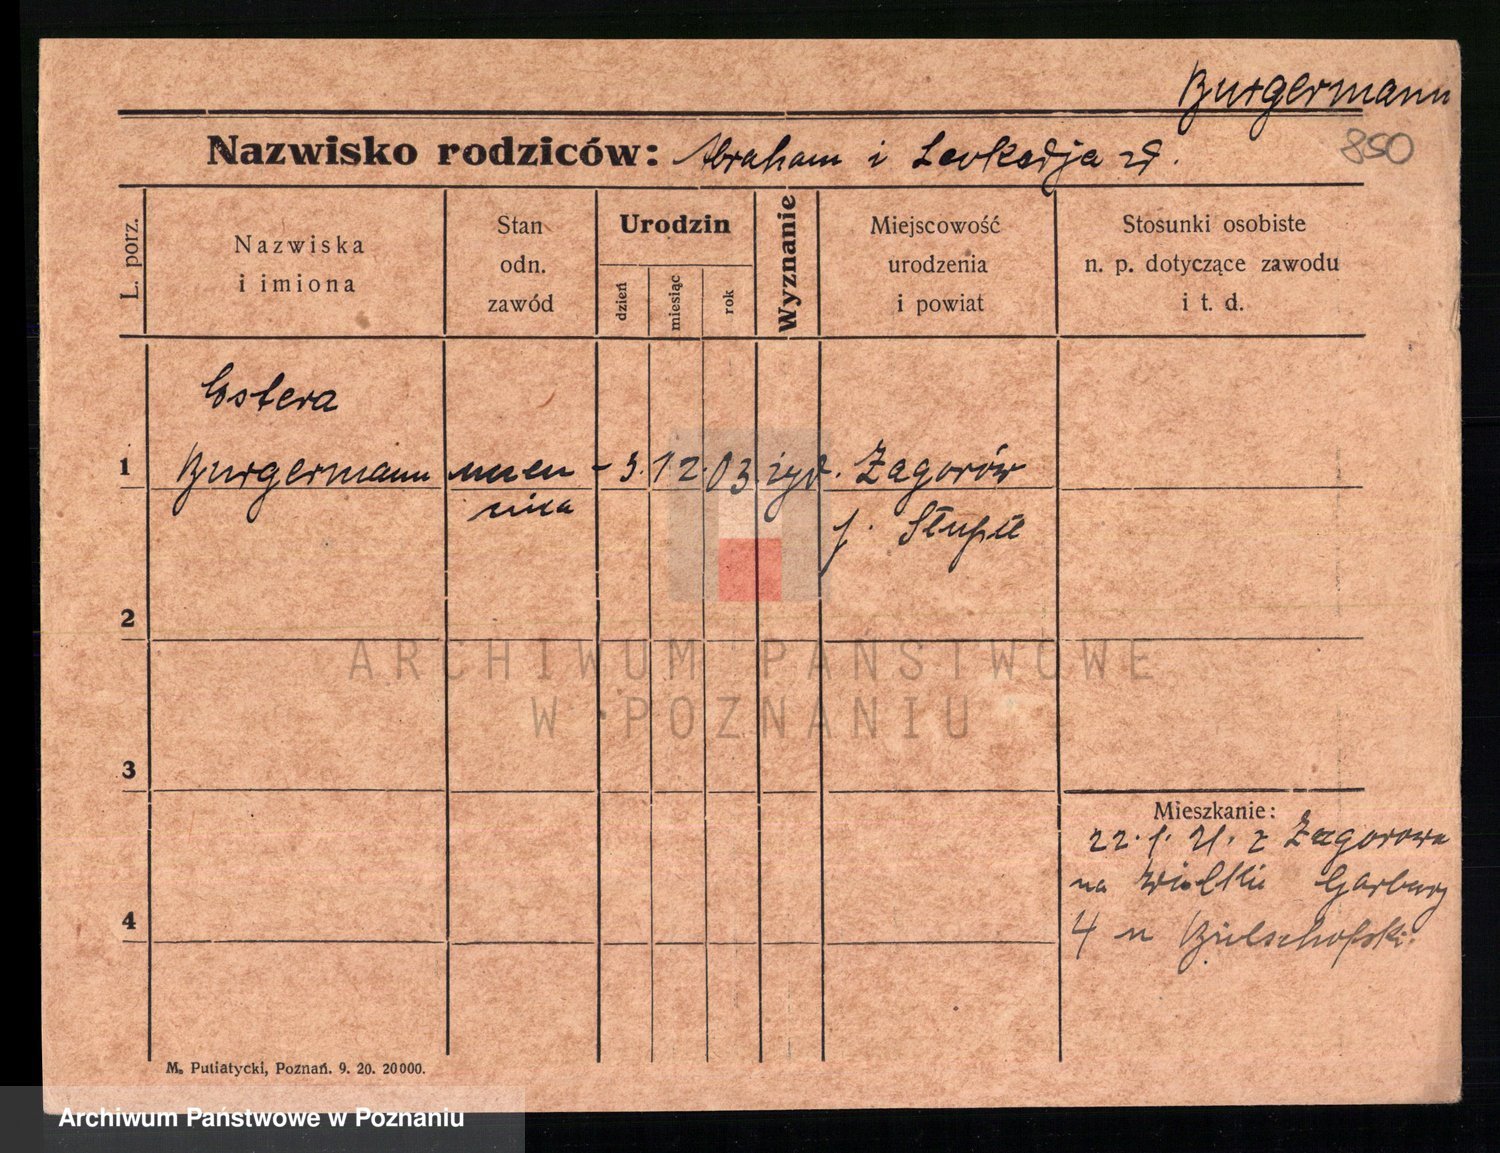 Burgermann
850
Nazwisko rodziców: Abraham i Leokadja zd.
L. porz.
Nazwiska
i imiona
Stan
odn.
zawód
Urodzin
dzień
miesiąc
rok
Wyznanie
Miejscowość
urodzenia
i powiat
Stosunki osobiste
n. p. dotyczące zawodu
i t. d.
Estera
1 Burgermann uczen- 3. 12. 03 żyd. Zagorów
nica p. Słupca
2
3
4
Mieszkanie:
22. 1. 21. z Zagorowa
na Wielkie Garbary
4 u Bielschofski.
M. Putiatycki, Poznań. 9. 20. 20000.
ARCHIWUM PAŃSTWOWE
W POZNANIU
Archiwum Państwowe w Poznaniu